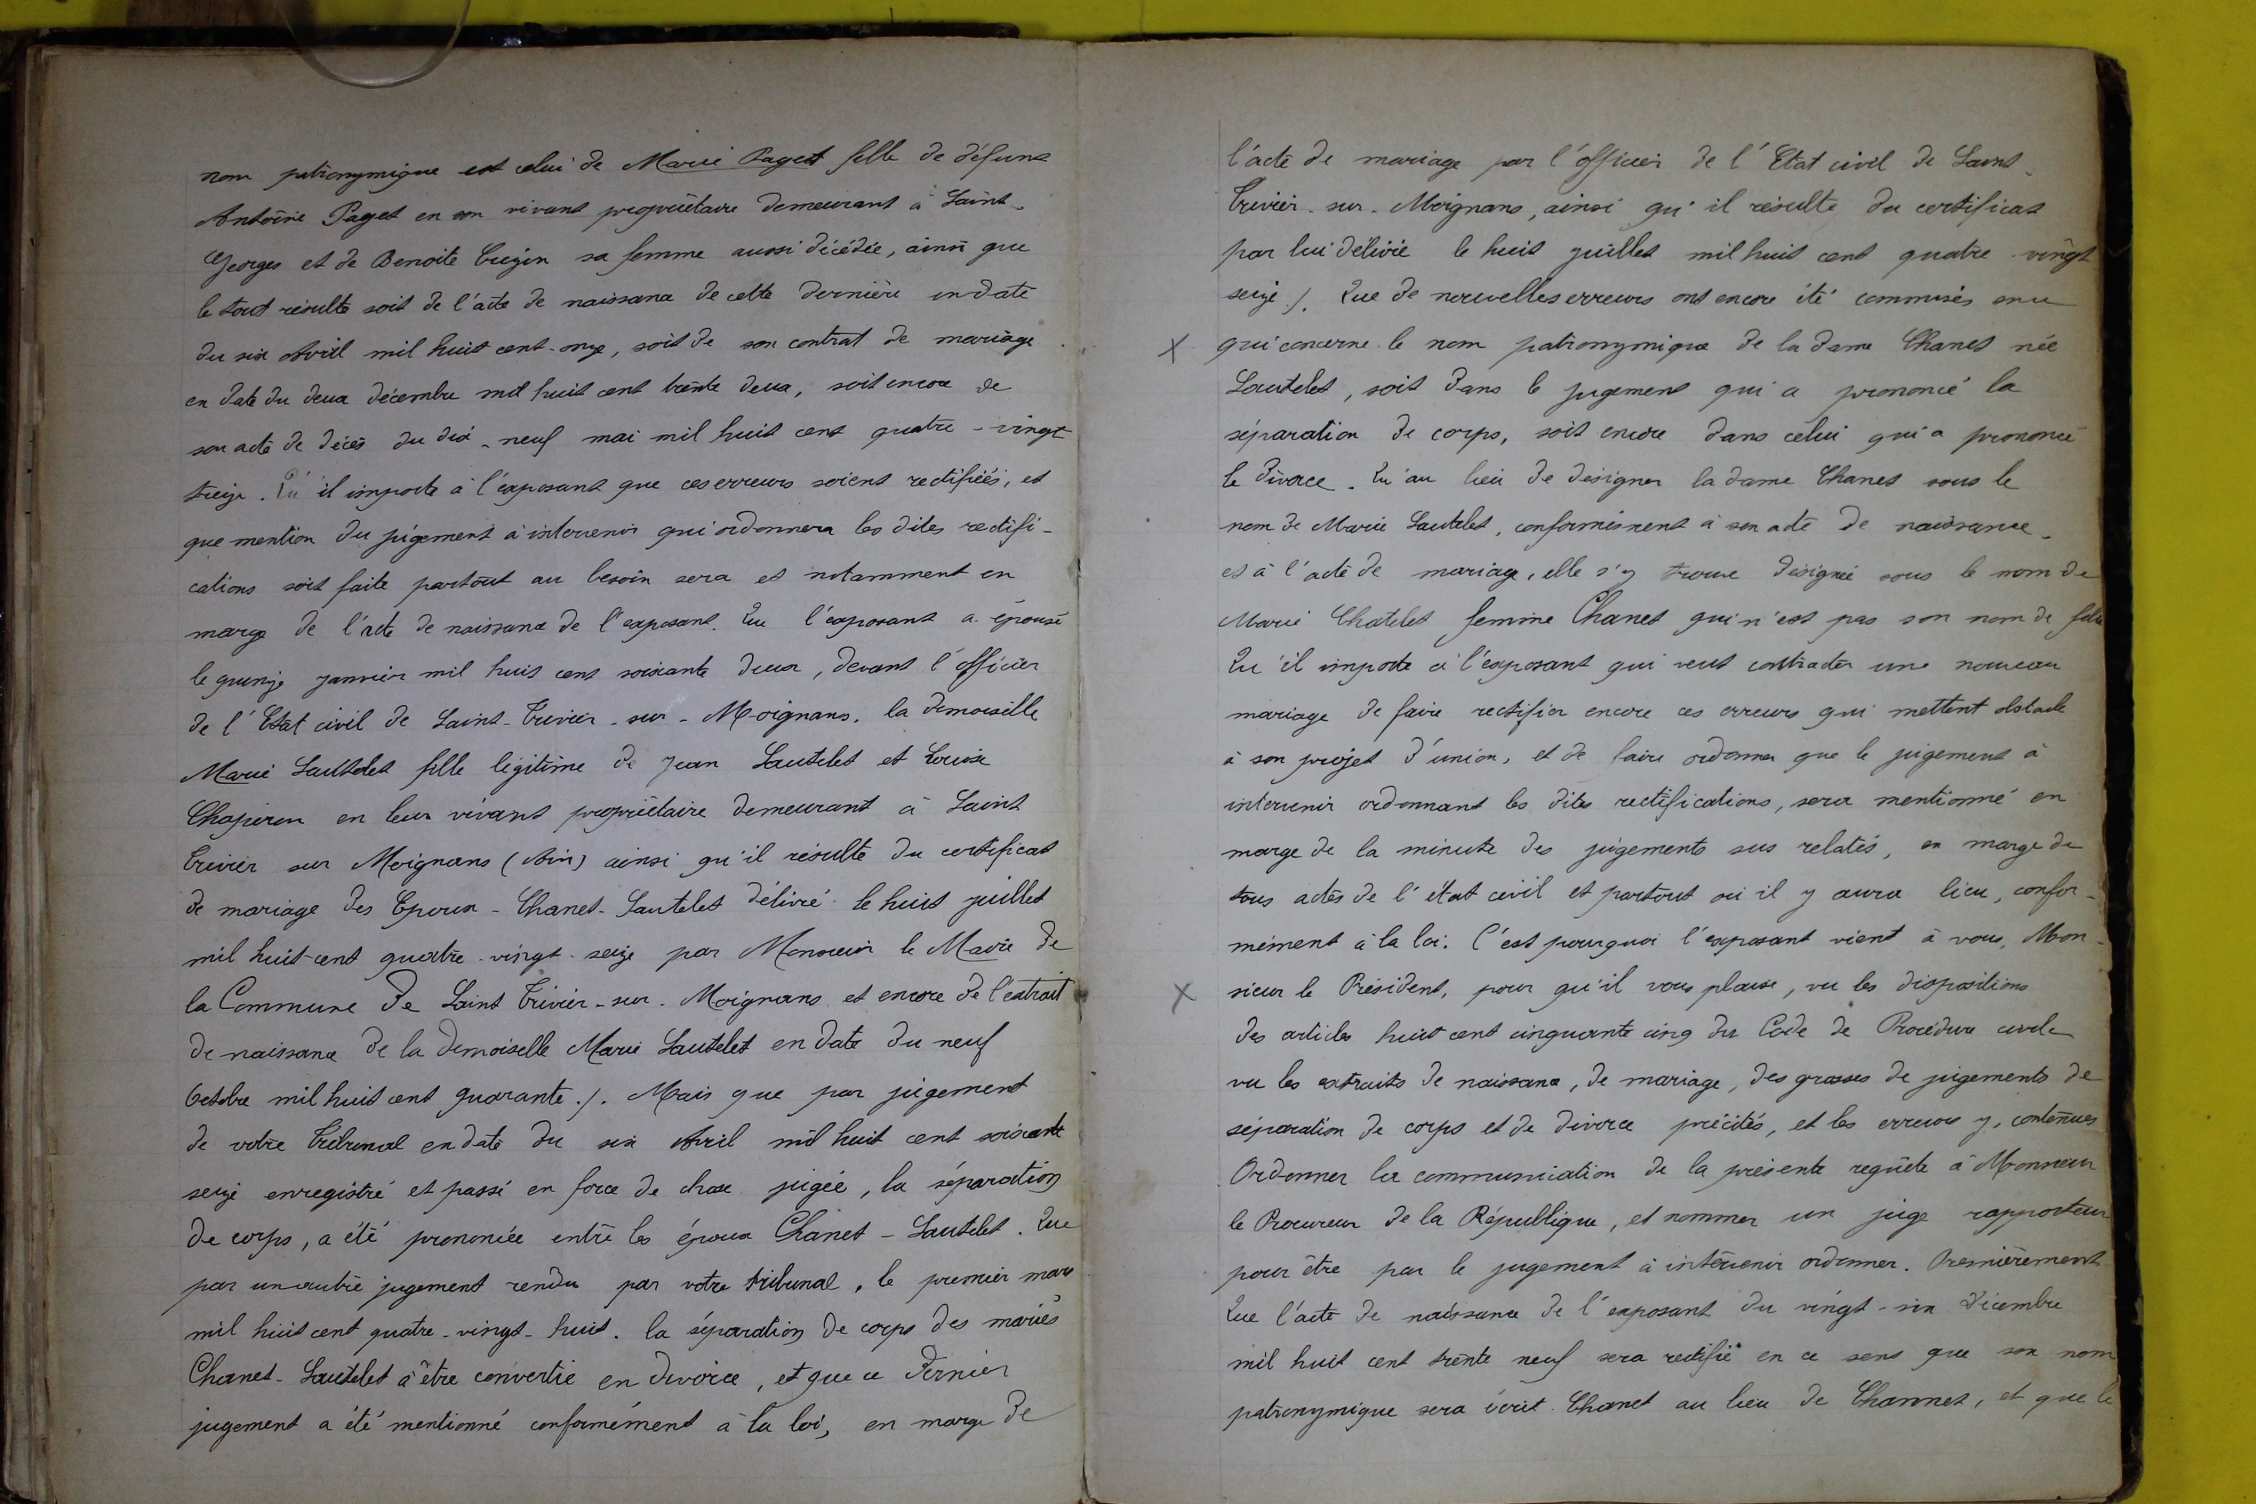 nom patronymique est celui de Marie Paget fille de défunt
Antoine Paget en son vivant propriétaire demeurant à Saint-
Georges et de Benoite Crégin sa femme aussi décédée, ainsi que
le tout résulte soit de l'acte de naissance de cette dernière en date
du six Avril mil huit cent-onze, soit de son contrat de mariage
en date du deux décembre mil huit cent trente deux, soit encore de
son acte de décès du dix-neuf mai mil huit cent quatre-vingt
treize. Qu'il importe à l'exposant que ces erreurs soient rectifiées, et
que mention du jugement à intervenir qui ordonnera les dites rectifi-
cations soit faite partout au besoin sera et notamment en
marge de l'acte de naissance de l'exposant. Que l'exposant a épousé
le quinze janvier mil huit cent soixante deux, devant l'officier
de l'Etat civil de Saint-Trivier-sur-Moignans. la demoiselle
Marie Lautelet fille légitime de Jean Lautelet et Louise
Chaperon en leur vivant propriétaire demeurant à Saint
Trivier sur Moignans (Ain) ainsi qu'il résulte du certificat
de mariage des Epoux-Chanet-Lautelet délivré le huit juillet
mil huit-cent quatre-vingt-seize par Monsieur le Maire de
la Commune De Saint Trivier-sur-Moignans et encore de l'extrait
de naissance de la demoiselle Marie Lautelet en date du neuf
Octobre mil huit cent quarante./. Mais que par jugement
de votre Tribunal en date du six Avril mil huit cent soixante
seize enregistré et passé en force de chose jugée, la séparation
de corps, a été prononcée entre les époux Chanet-Lautelet. Que
par un autre jugement rendu par votre tribunal, le premier mars
mil huit cent quatre-vingt-huit. la séparation de corps des mariés
Chanet-Lautelet à être convertie en divorce, et que ce dernier
jugement a été mentionné conformément à la loi, en marge de
l'acte de mariage par l'officier de l'Etat civil de Saint-
Trivier-sur-Moignans, ainsi qu'il résulte du certificat
par lui délivré le huit juillet mil huit cent quatre-vingt
seize./. Que de nouvelles erreurs ont encore été commises en ce
X qui concerne le nom patronymique de la dame Chanet née
Lautelet, soit dans le jugement qui a prononcé la
séparation de corps, soit encore dans celui qui a prononcé
le divorce. Qu'au lieu de désigner la dame Chanet sous le
nom de Marie Lautelet, conformément à son acte de naissance
et à l'acte de mariage, elle s'y trouve désignée sous le nom de
Marie Chatelet femme Chanet qui n'est pas son nom de fille
Qu'il importe à l'exposant qui veut contracter une nouveau
mariage de faire rectifier encore ces erreurs qui mettent obstacle
à son projet d'union, et de faire ordonner que le jugement à
intervenir ordonnant les dites rectifications, sera mentionné en
marge de la minute des jugements sus relatés, en marge de
tous actes de l'état civil et partout où il y aura lieu, confor-
mément à la loi. C'est pourquoi l'exposant vient à vous, Mon-
X sieur le Président, pour qu'il vous plaise, vu les dispositions
des articles huit cent cinquante cinq du Code de Procédure civile
vu les extraits de naissance, de mariage, des grosses de jugements de
séparation de corps et de divorce précités, et les erreurs y, contenues
Ordonner la communication de la présente requête à Monsieur
le Procureur de la République, et nommer un juge rapporteur
pour être par le jugement à intervenir ordonner. Premièrement
Que l'acte de naissance de l'exposant du vingt-six décembre
mil huit cent trente neuf sera rectifié en ce sens que son nom
patronymique sera écrit Chanet au lieu de Channet, et que le